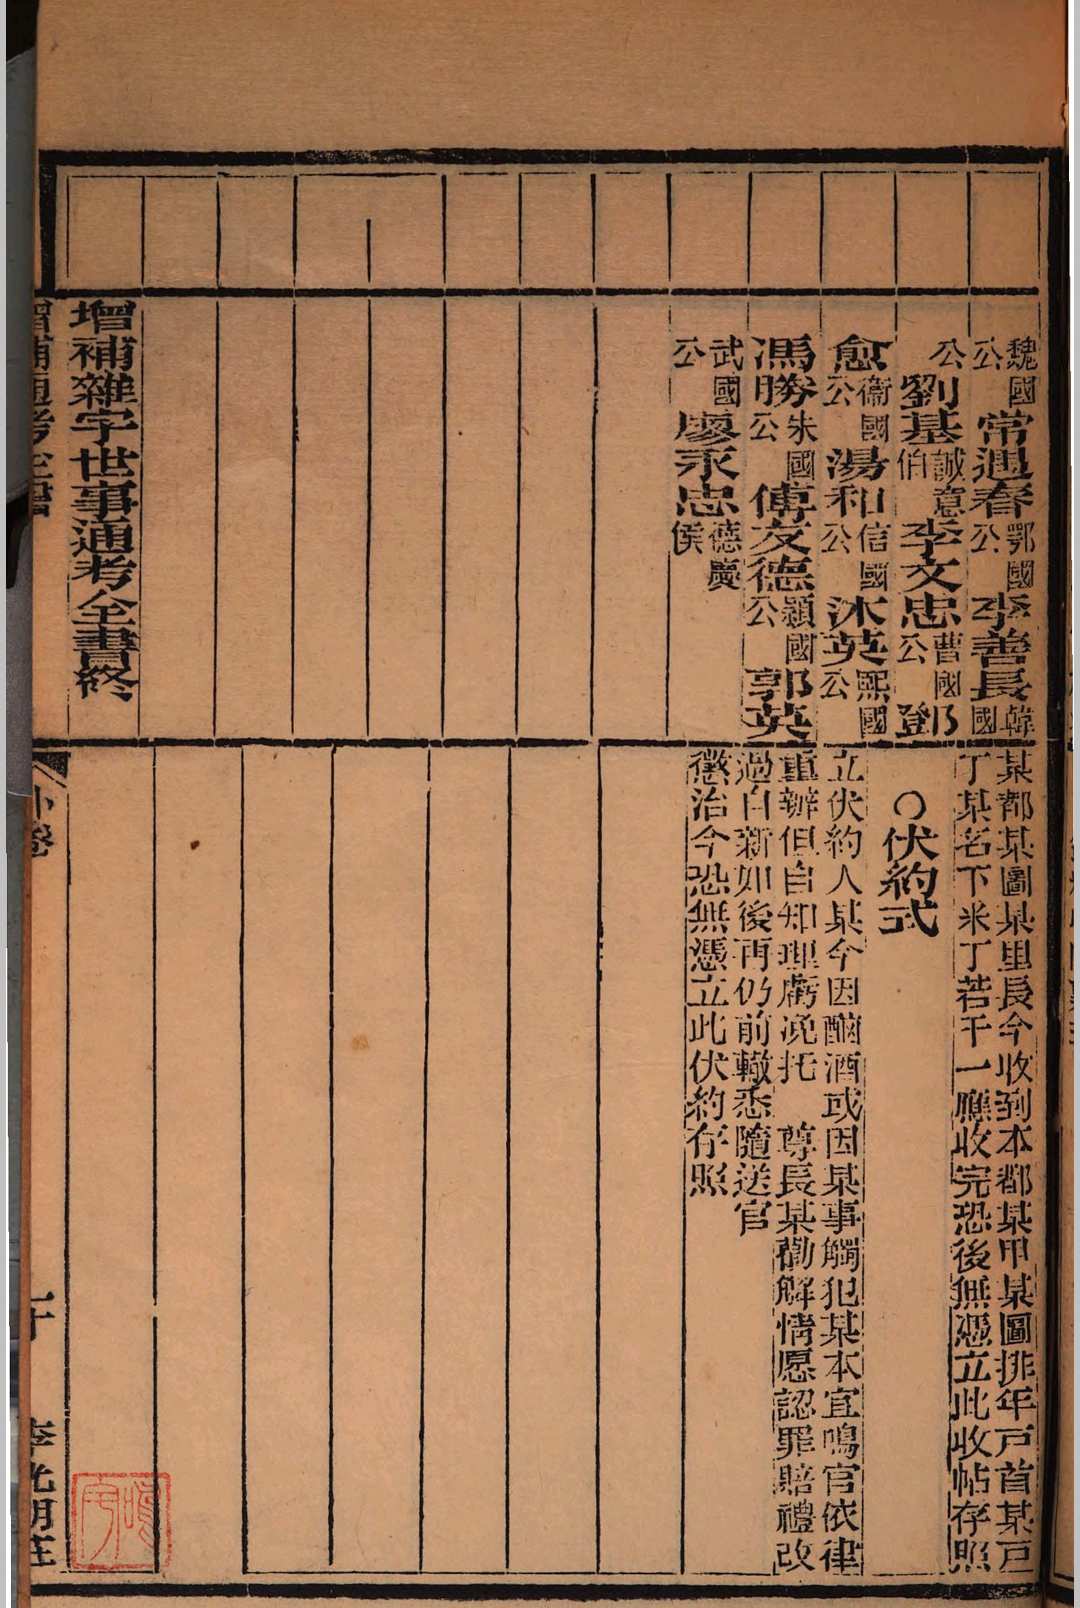 魏國公 常遇春 鄂國公 李善長 韓國
公 劉基 誠意伯 李文忠 曹國公 鄧
愈 衞國公 湯和 信國公 沐英 熙國公
馮勝 宋國公 傅友德 頴國公 郭英
武國公 廖永忠 德慶侯
增補雜字世事通考全書終
某都某圖某里長今收到本都某甲某圖排年戸首某戸
丁某名下米丁若干一應收完恐後無憑立此收帖存照
○伏約式
立伏約人某今因酗酒或因某事觸犯某本宜鳴官依律
重辦但自知理虧凂托 尊長某勸解情愿認罪賠禮改
過自新如後再仍前轍悉隨送官
懲治今恐無憑立此伏約存照
增補通考全書
外卷
二十
李光明莊